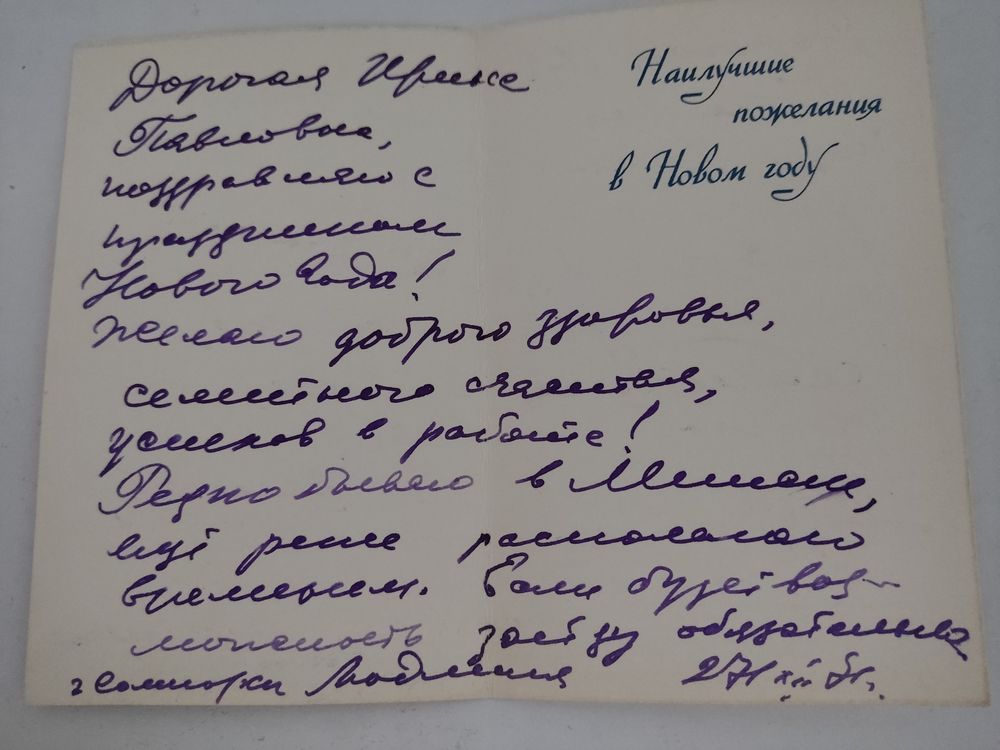 Наилучшие
пожелания
в Новом году
Дорогая Ирина
Павловна,
поздравляю с
праздником
Нового Года!
Желаю доброго здоровья,
семейного счастья,
успехов в работе!
Редко бываю в
ещё реже располагаю
временем. Если будет воз-
можность заеду обязательно
Людмила